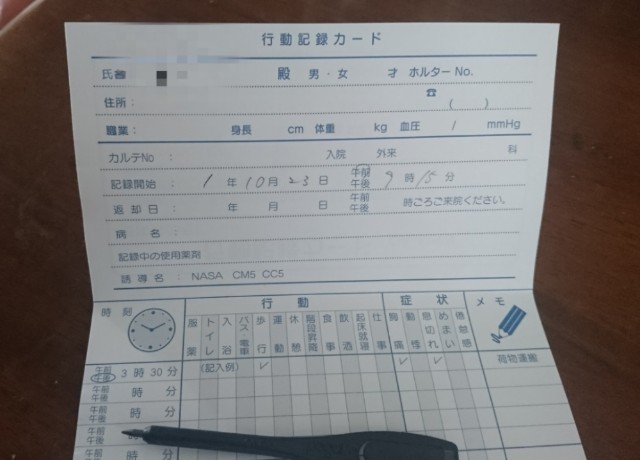 行動記録カード
氏名 殿 男・女 才 ホルターNo.
住所： ☎ （ ）
職業： 身長 cm 体重 kg 血圧 / mmHg
カルテNo ： 入院 外来 科
記録開始 ： 1 年 10 月 23 日 午前 午後 9 時 15 分
返却日 ： 年 月 日 午前 午後 時ごろご来院ください。
病名 ：
記録中の使用薬剤
誘導名 ： NASA CM5 CC5
時刻 行動 症状 メモ
服薬 トイレ 入浴 バス・電車 歩行 運動 休憩 階段昇降 食事 飲酒 起床就寝 仕事 胸痛 動悸 息切れ めまい 倦怠感
午前 午後 3 時 30 分 (記入例) ✓ ✓ ✓ 荷物運搬
午前 午後 時 分
午前 午後 時 分
午前 午後 時 分